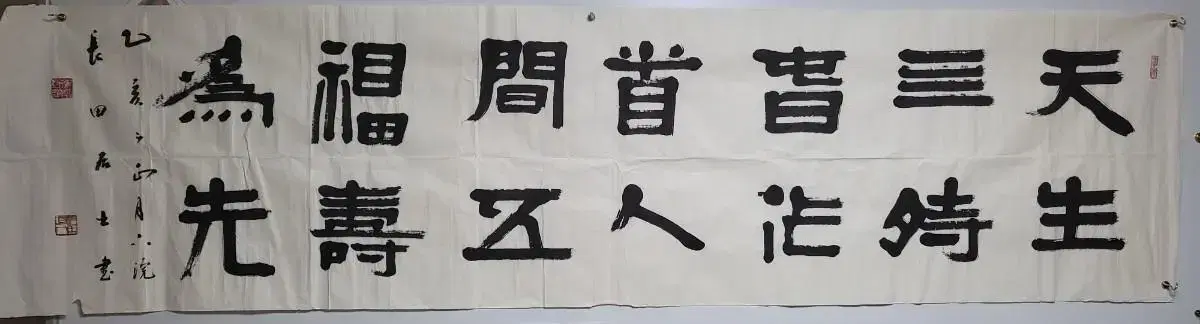 天生
三時
旾作
首人
間五
福壽
為先
乙亥 正月 浣
長田居士書